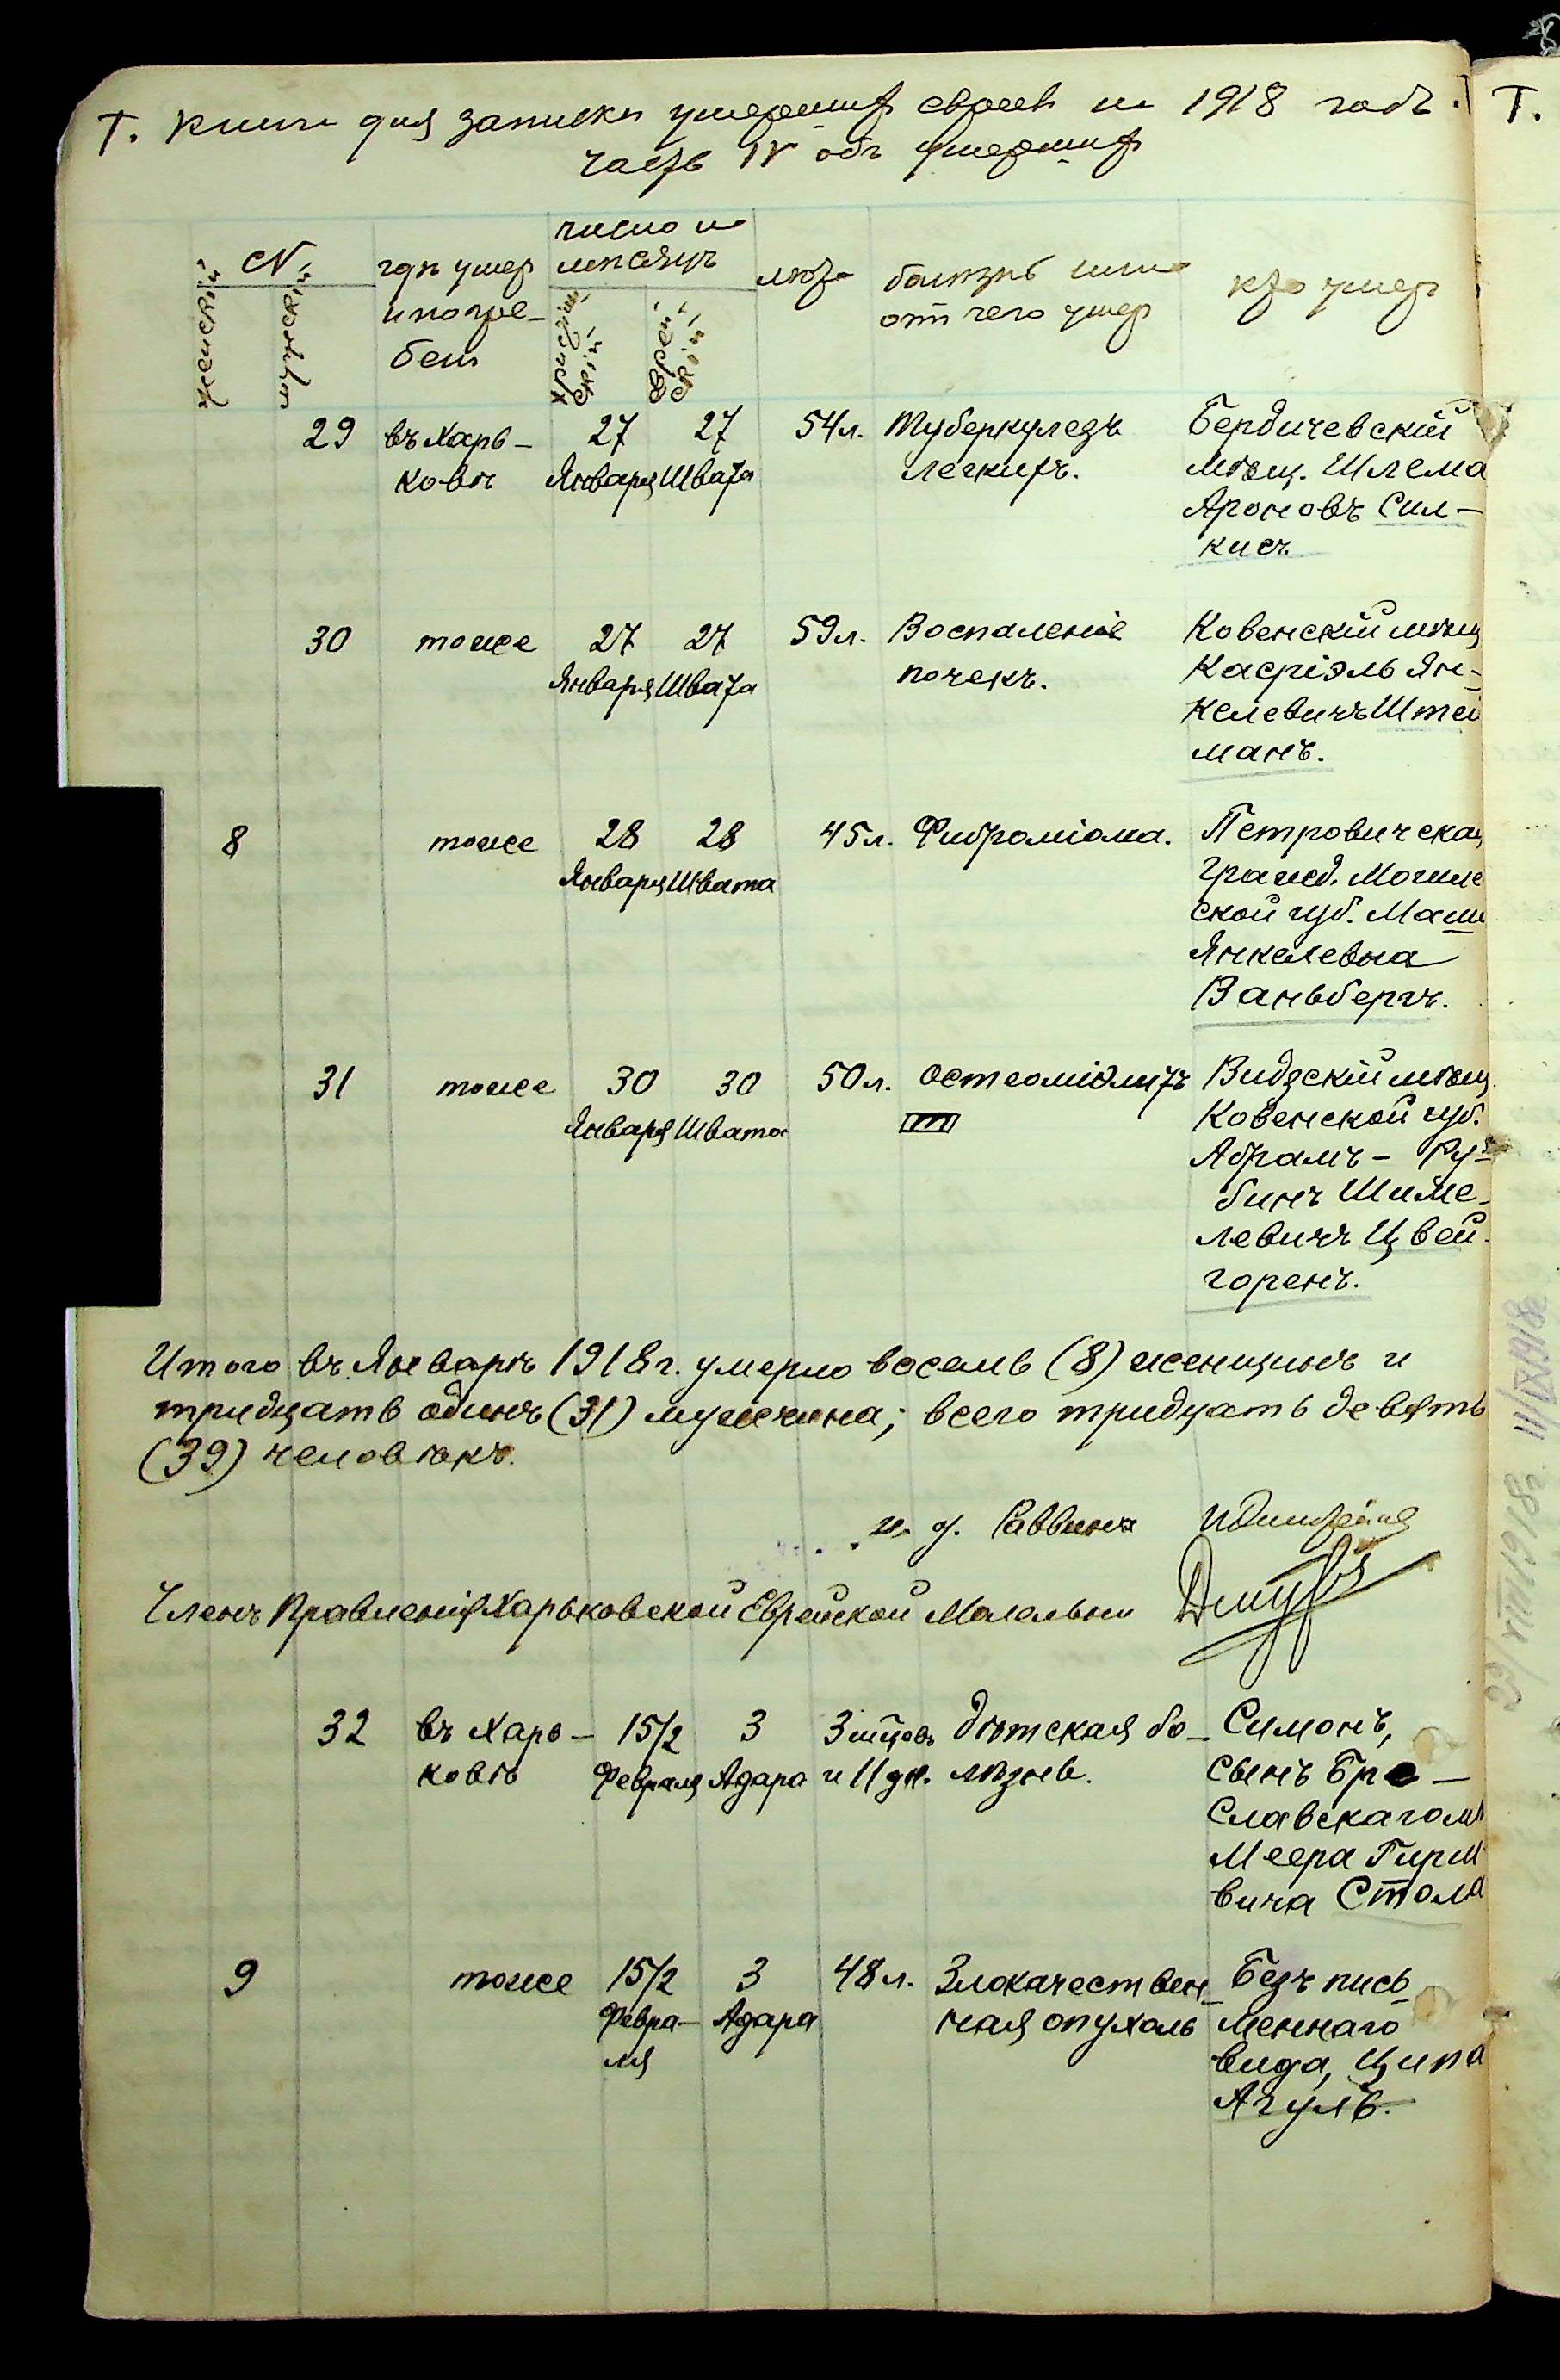 Т. Книги для записки умершихъ евреевъ на 1918 годъ. Т.
часть IV объ умершихъ
№
женский
мужеский
гдѣ умер
и погре-
бенъ
число и
мѣсяцъ
христіан
скій
еврей
скій
лѣта
болѣзнь или
отъ чего умер
кто умер
29 въ Харь-
ковѣ
27 27
Января Швата
54 л. Туберкулезъ
легкихъ.
Бердичевскій
мѣщ. Шлема
Ароновъ Сил-
кисъ.
30 тоже 27 27
Января Швата
59 л. Воспаленіе
почекъ.
Ковенскій мѣщ
Касріэль Ян-
келевичъ Штей
манъ.
8 тоже 28 28
Января Швата
45 л. Фиброміома.
Петровичская
гражд. Могиле
ской губ. Маш
Янкелевна
Ваньбергъ.
31 тоже 30 30
Января Швата
50 л. Остеоміэлитъ
Видзскій мѣщ.
Ковенской губ.
Абрамъ - Ру-
бинъ Шиме-
левичъ Цвей-
горенъ.
Итого въ Январѣ 1918 г. умерло восемь (8) женщинъ и
тридцать одинъ (31) мужчина; всего тридцать девять
(39) человѣкъ.
и. д. Раввина
Членъ Правленія Харьковской Еврейской Молельни
32 въ Харь-
ковѣ
15/2 3
Февраля Адара
3 мѣсяц.
и 11 дн.
Дѣтская бо-
лѣзнь.
Симонъ,
сынъ Бра-
славскаго м
Меера Гирш
вича Стола
9 тоже 15/2 3
Февра-
ля
Адара
48 л. Злокачествен-
ная опухоль
Безъ пись
меннаго
вида, Ципа
Агуль.
22/VIII 1918 г. 11/IX 1918 г.